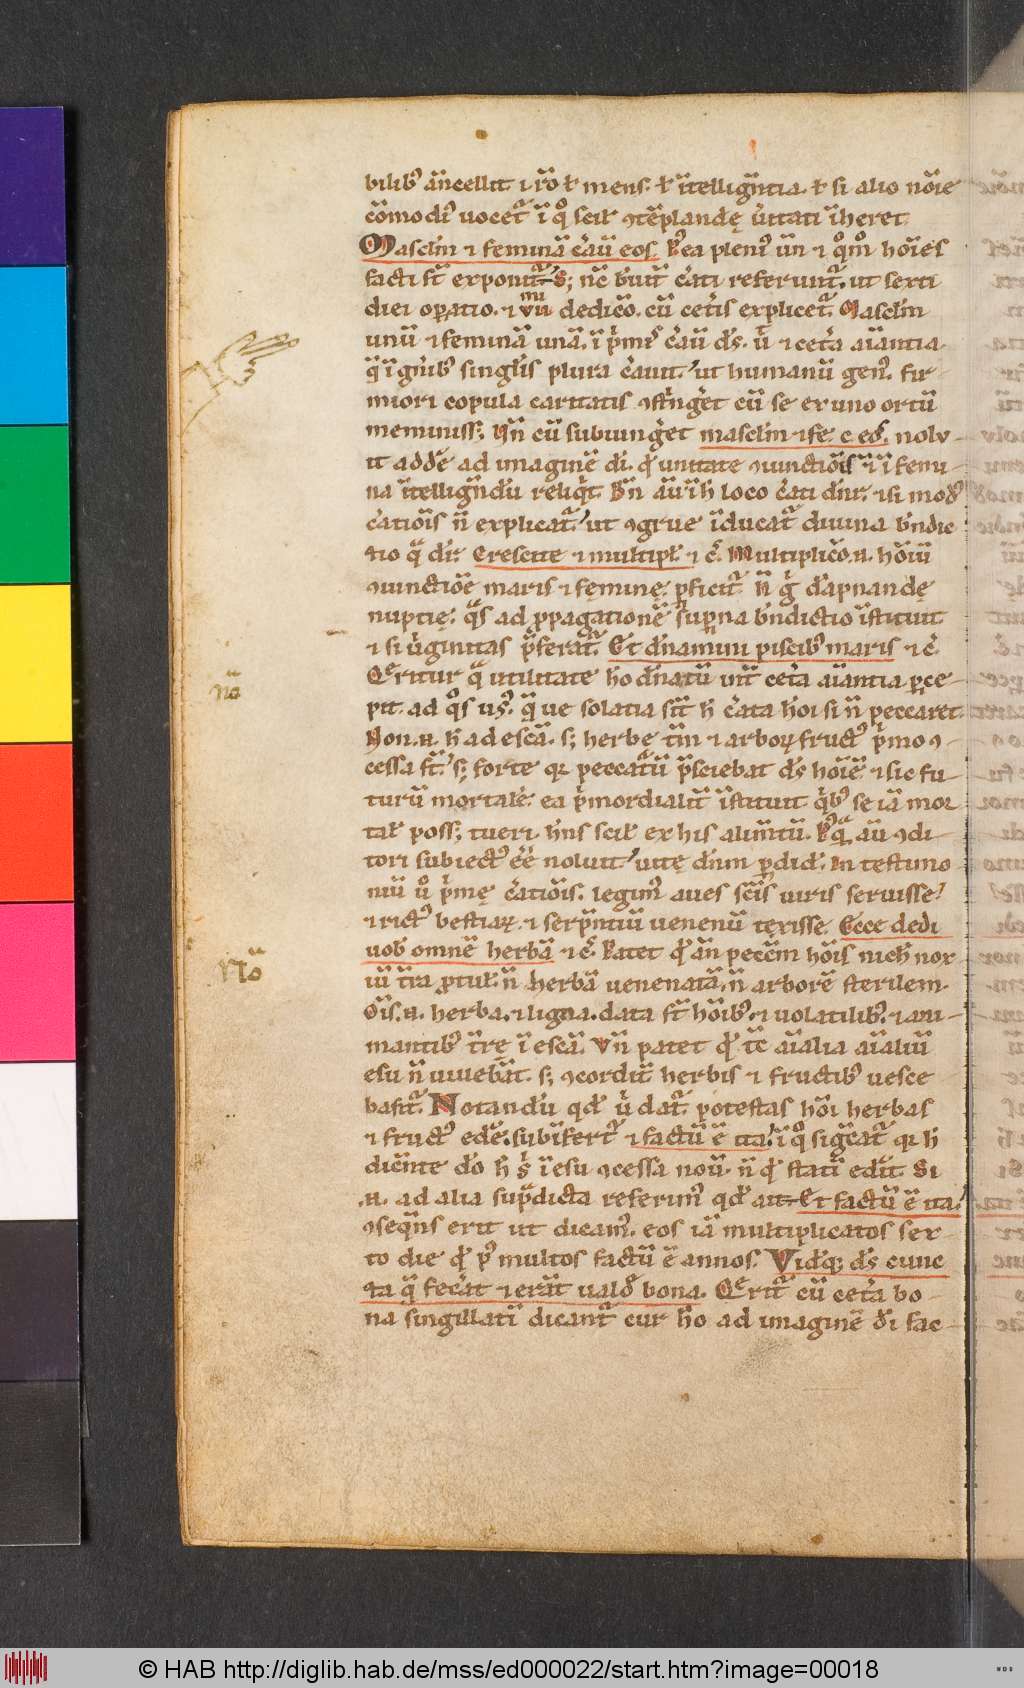 bilib᷒ ãncellit ⁊ rõ ł mens. ł ĩtelligñtia. ł si alio nõie
cõmodi᷒ uocet᷑ ĩ qͦ scił ꝯtẽplandę ũitati ĩheret.
Masclm̃ ⁊ feminã c̃aũ eos. ea pleni᷒ ũn ⁊ qͦmͦ hoĩes
facti st̃ exponit᷑. S; nc̃ c̃ati referunt᷑. ut sexti
diei oꝑatio. ⁊ dedicõ. cũ cet̃is explicet᷑. Masclm̃
unũ ⁊ feminã unã. ĩ p̃mis c̃aũ ds̃. ũ ⁊ cet̃a aĩantia.
q̃ ĩ gñib᷒ singłis plura c̃auit. ut humanũ gen᷒. fir
miori copula caritatis ꝯst̃nget cũ se ex uno ortũ
meminiss;. Nñ cũ subiunget masclm̃ ⁊ fe. c. eo᷒. nolu
it adde᷒ ad imaginẽ di. qd̃ unitate ꝯiunctiõis ⁊ ĩ femi
na ĩtelligñdũ reliqͥt. Bñ aũ ĩ h̃ loco c̃ati dñr. ⁊ si mod᷒
c̃atiõis ñ explicat᷑. ut ꝯgrue ĩducat᷑ diuina bñdic
tio q̃ dr̃. Crescite ⁊ multipł ⁊ c̃. Multiplicõ .n. hoĩũ
ꝯiunctiõe maris ⁊ feminę. ꝑficit᷑. ñ g̃ dãpnandę
nuptię. q̃s ad ꝓpagationẽ suꝑna bñdictio ĩstituit
⁊ si ũginitas p̃ferat᷑. Et dñamini piscib᷒ maris ⁊ c̃.
Q̃ritur q̃ utilitate hõ dñatũ ĩ cet̃a aĩantia ꝑce
pit. ad qͦs us᷒. q̃ ue solatia st̃ h̃ c̃ata hoĩ si ñ peccaret
Non .n. h̃ ad escã. s; herbe tm̃ ⁊ arborꝝ fruct᷒ p̃mo ꝯ
cessa st̃. s; forte qr peccatũ p̃sciebat ds̃ hoĩẽ ⁊ sic fu
turũ mortalẽ. ea p̃mordialit̃ ĩstituit qͥb᷒ se iã mor
tał poss; tueri. hñs scił ex his alimtũ. aũ ꝯdi
tori subiect᷒ eẽ noluit. uite dñm ꝑdid᷒. In testimo
niũ ũͦ p̃mę c̃atiõis. legim᷒ aues sc̃is uiris seruisse.
⁊ rict᷒ bestiaꝝ. ⁊ serp̃ntiũ uenenũ texisse. Ecce dedi
uob᷒ omnẽ herbã ⁊ c̃. Patet qd̃ ãn pecc̃m hoĩs nich̃ nox
iũ t̃ra ꝓtuł. ñ herbã uenenatã. ñ arborẽ sterilem.
Oĩs .n. herba. ⁊ ligna. data st̃ hoĩb᷒. ⁊ uolatilib᷒. ⁊ ani
mantib᷒ t̃rẽ ĩ escã. Vñ patet qd̃ tc̃ aĩalia aĩaliũ
esu ñ uiuebãt. s; ꝯcordit̃ herbis ⁊ fructib᷒ uesce
bãtr᷑. Notandũ qd̃ ũ dat᷑. potestas hoĩ herbas
⁊ fruct᷒ ede᷒. subĩfert᷑ ⁊ factũ ẽ ita. ĩ qͦ sigñcat᷑ qr h̃
dicente dõ h̃ ĩ esu ꝯcessa nou᷒. ñ qd̃ statĩ edit. Si
.n. ad alia sup̃dicta referim᷒ qd̃ ait. Et factũ ẽ ita.
ꝯseqñs erit ut dicam᷒. eos iã multiplicatos sex
to die qd̃ p᷒ multos factũ ẽ annos. Vidq; ds̃ cunc
ta q̃ fec̃at ⁊ erãt uald᷒ bona. Q̃rit᷑ cũ cet̃a bo
na singillatĩ dicant᷑ cur hõ ad imaginẽ di fac
nõ
Nõ
© HAB http://diglib.hab.de/mss/ed000022/start.htm?image=00018